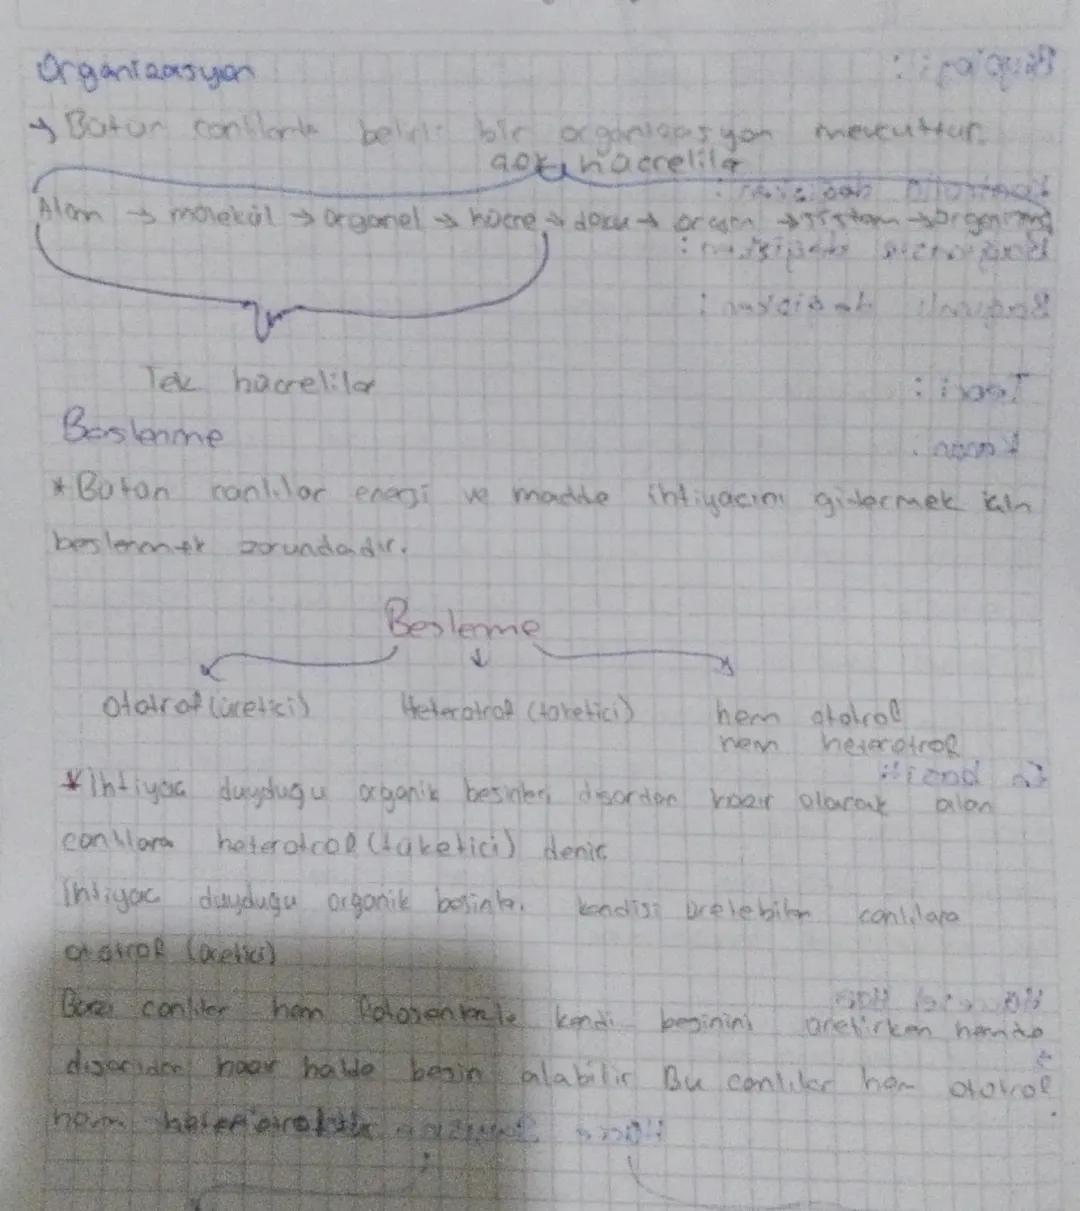 Organizasyon
→ Bütün canlılarda belirli bir organizasyon mevcuttur.
çok hücreliler
Atom → molekül → organel → hücre → doku → organ → sistem → organizma
Tek hücreliler
Beslenme
* Bütün canlılar enerji ve madde ihtiyacını gidermek için
beslenmek zorundadır.
Beslenme
ototrof (üretici) Heterotrof (tüketici) hem ototrof
hem heterotrof
* İhtiyac duydugu organik besinleri dısardan hazır olarak alan
canlılara heterotrof (tüketici) denir
İhtiyac duydugu organik besinle. kendisi üretebilen canlılara
ototrof (üretici)
Bazı canlılar hem fotosentezle kendi besinini üretirken hemde
dısarıdan hazır halde besin alabilir Bu canlılar hem ototrof
hem